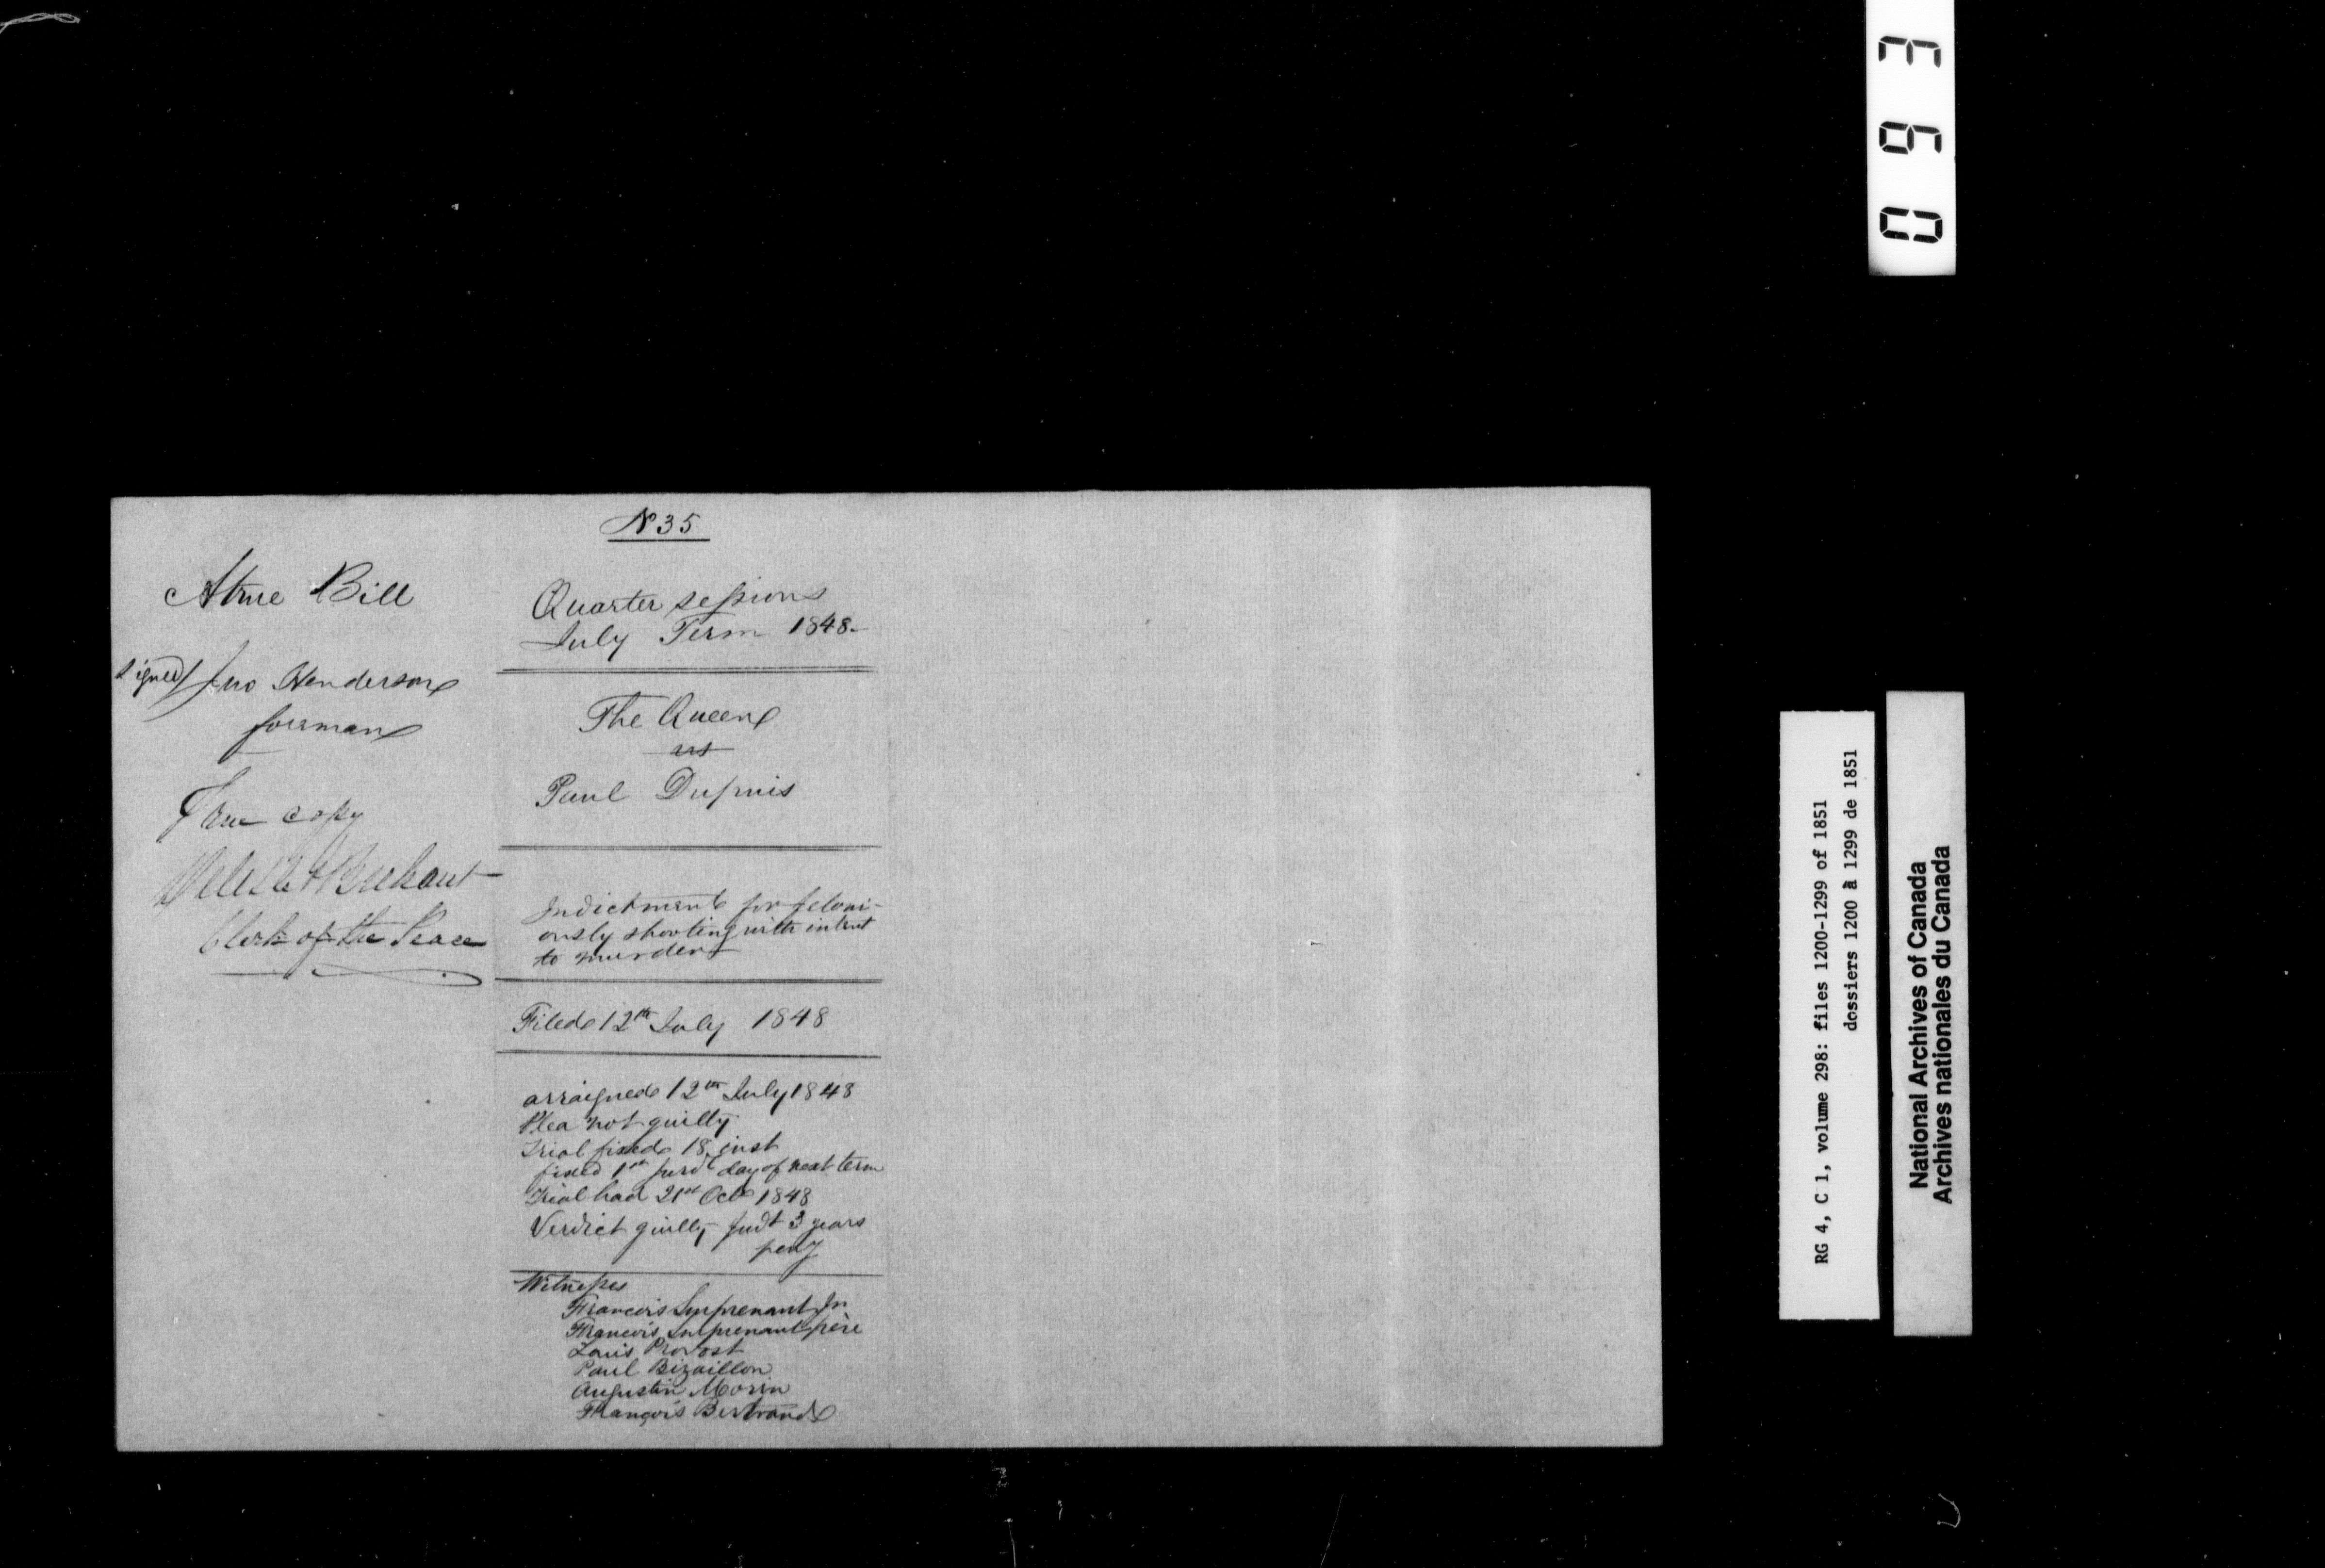 N° 35
A true Bill
signed/ Jno Henderson
foreman
True copy
Delisle & Brehaut
Clerk of the Peace
Quarter sessions
July Term 1848.
The Queen
vs
Paul Dupuis
Indictment for feloni-
ously shooting with intent
to murder
Filed 12th July 1848
arraigned 12th July 1848
Plea not guilty
Trial fixed 18. inst
fixed 1st jurd day of next term
Trial had 21st Octr 1848
Verdict guilty Judt 3 years
peny
Witnesses
François Surprenant Jn
François Surprenant père
Louis Provost
Paul Bizaillon
Augustin Morin
François Bertrand
0693
RG 4, C 1, volume 298: files 1200-1299 of 1851
dossiers 1200 à 1299 de 1851
National Archives of Canada
Archives nationales du Canada